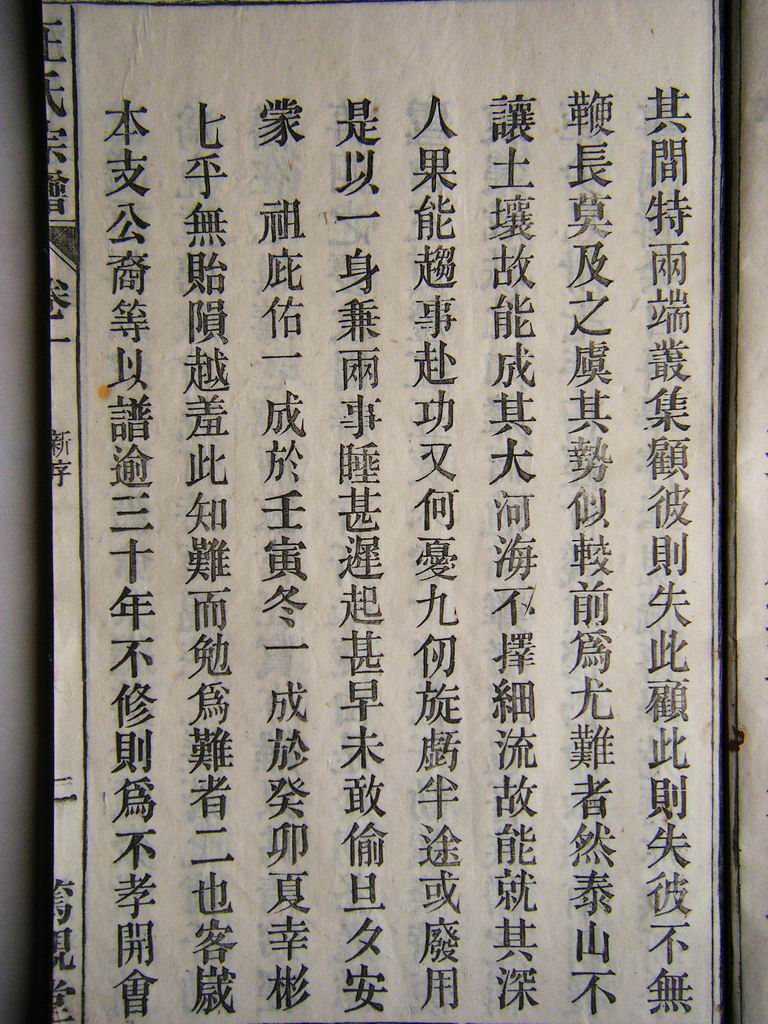 其間特兩端叢集顧彼則失此顧此則失彼不無
鞭長莫及之虞其勢似較前為尤難者然泰山不
讓土壤故能成其大河海不擇細流故能就其深
人果能趨事赴功又何憂九仞旋虧半途或廢用
是以一身兼兩事睡甚遲起甚早未敢偷旦夕安
蒙　祖庇佑一　成於壬寅冬一成於癸卯夏幸彬
七乎無貽隕越羞此知難而勉為難者二也客嵗
本支公裔等以譜逾三十年不修則為不孝開會
氏宗譜
卷一
新序
二